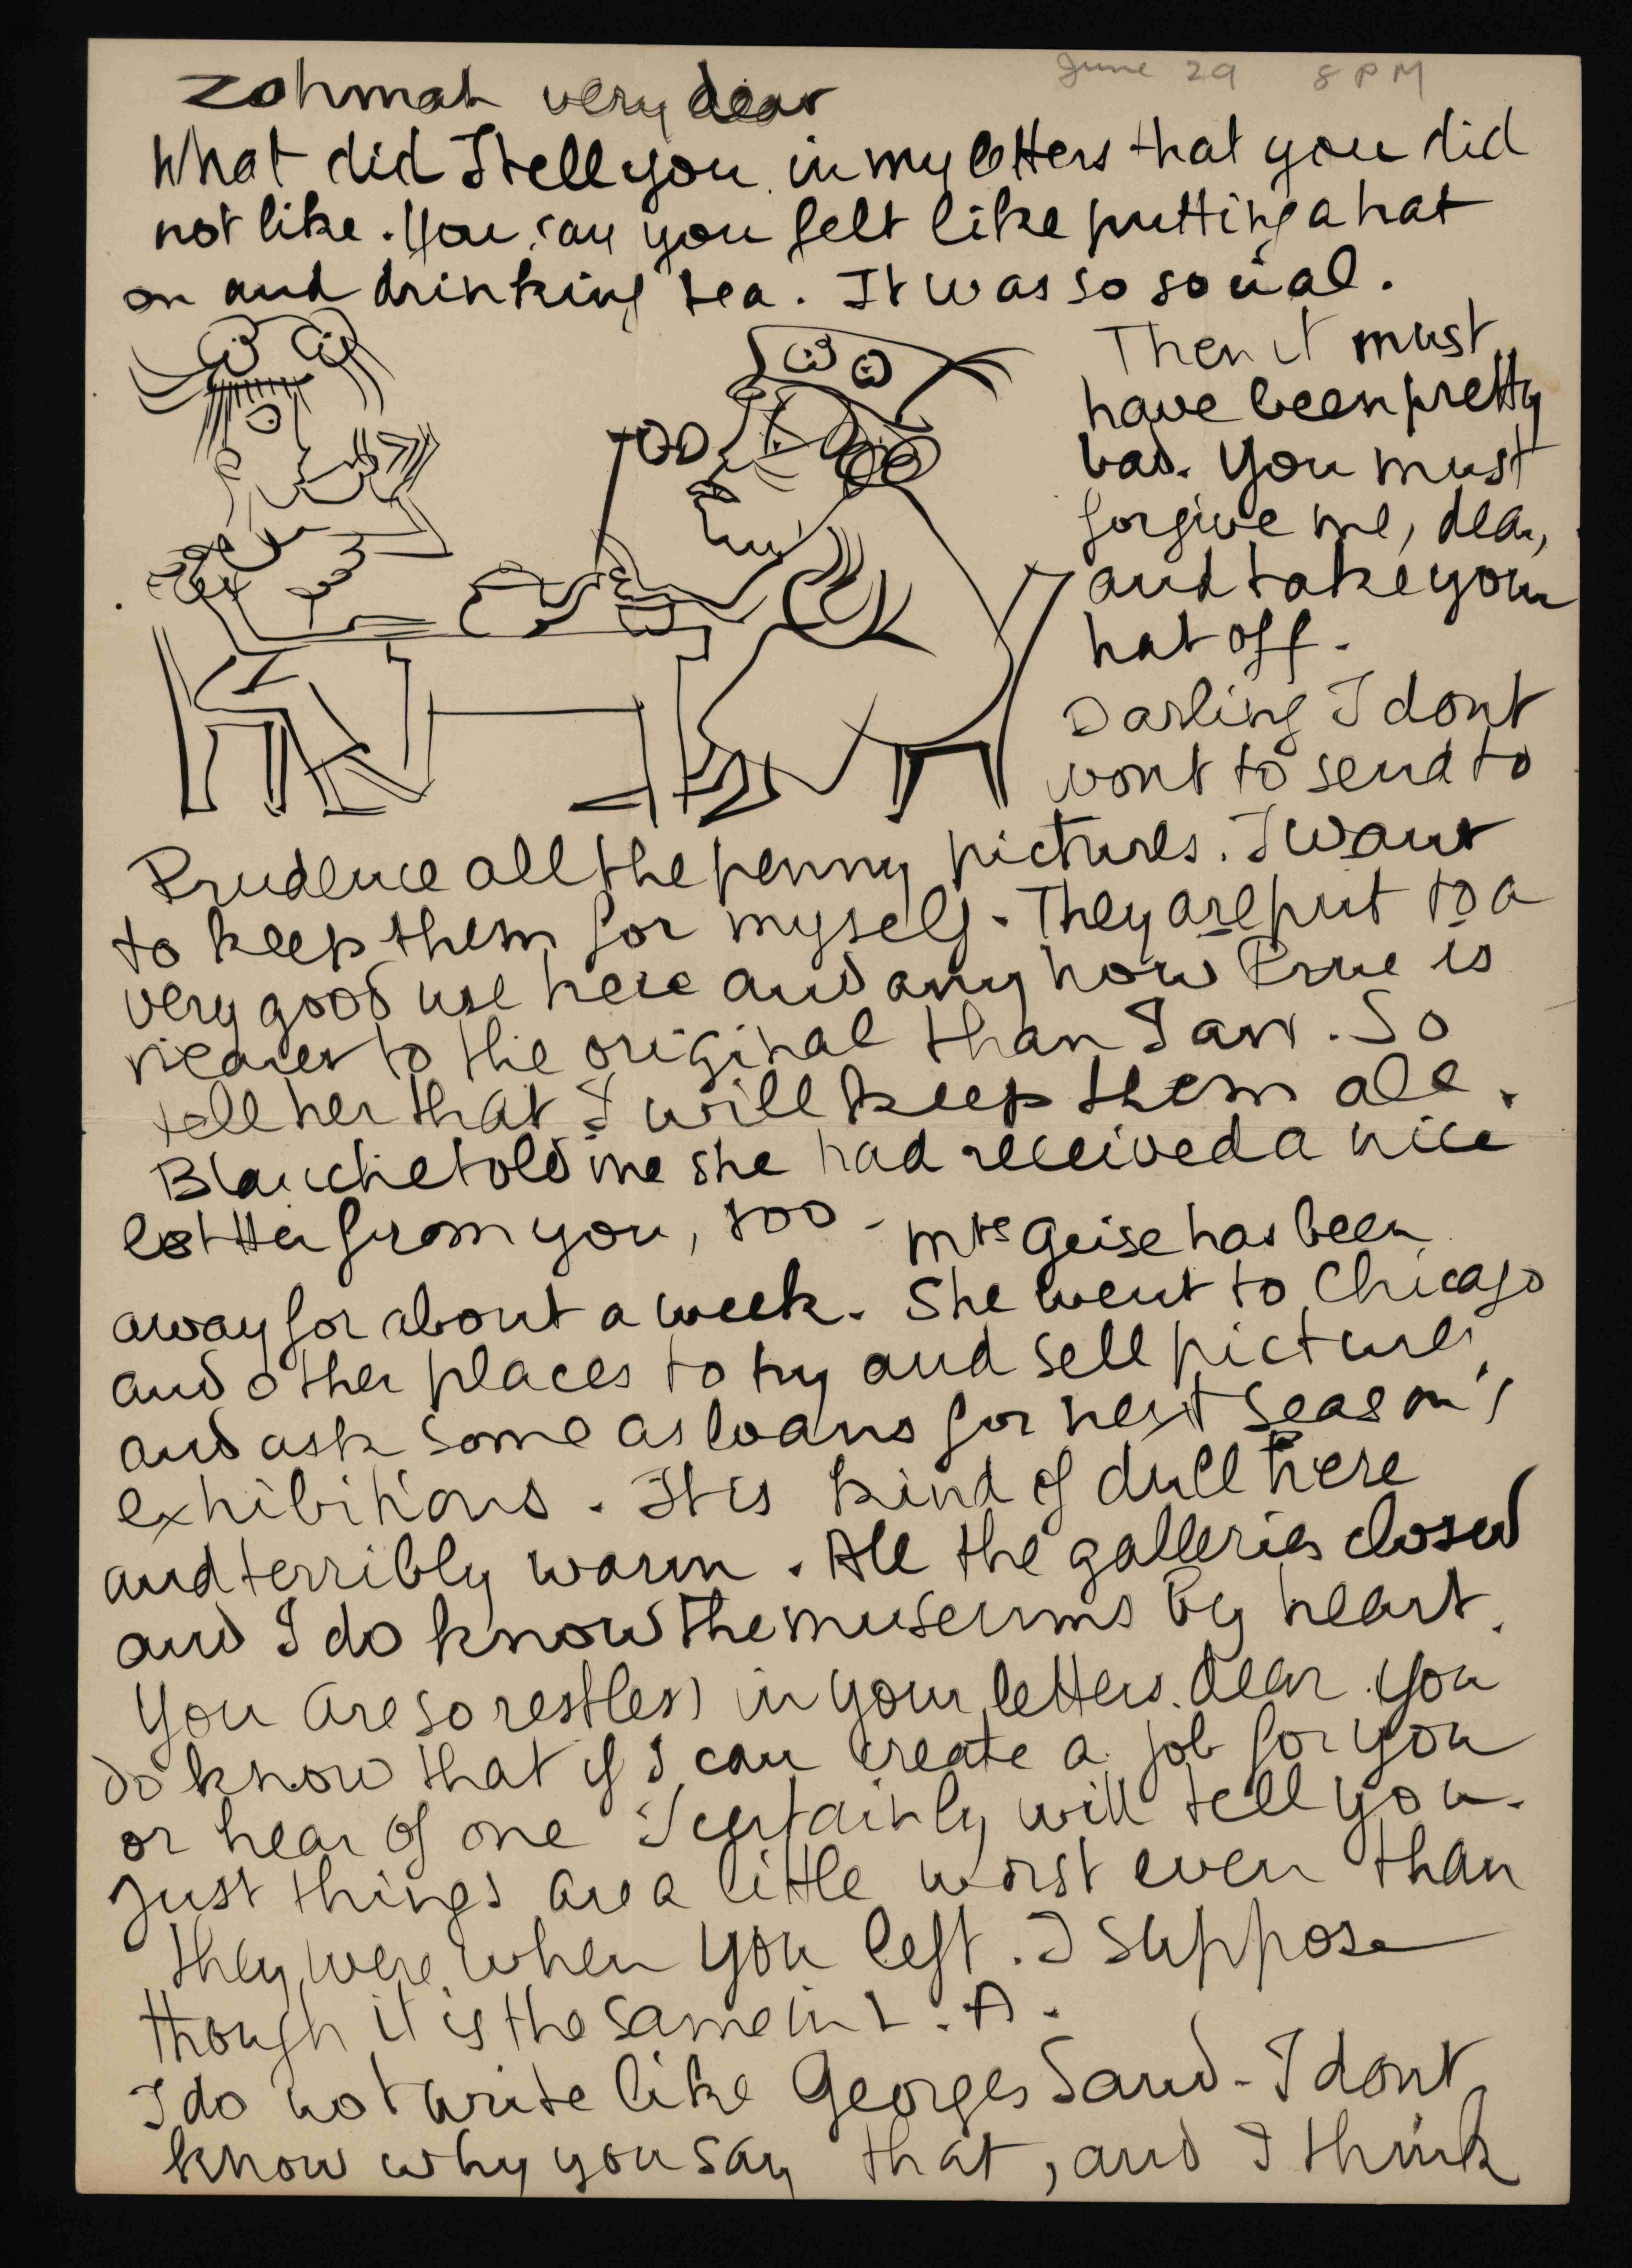 June 29 8 PM
Zohmah very dear
What did I tell you in my letters that you did
not like. You say you felt like putting a hat
on and drinking tea. It was so social.
Then it must
have been pretty
bad. You must
forgive me, dear,
and take your
hat off.
Darling I dont
wont to send to
Prudence all the penny pictures. I want
to keep them for myself. They are put to a
very good use here and anyhow Prue is
nearer to the original than I am. So
tell her that I will keep them all.
Blanche told me she had received a nice
letter from you, too. Mrs Geise has been
away for about a week. She went to Chicago
and other places to try and sell pictures
and ask some as loans for next season's
exhibitions. It is kind of dull here
and terribly warm. All the galleries closed
and I do know the museums by heart.
You are so restless in your letters dear. You
do know that if I can create a job for you
or hear of one I certainly will tell you.
Just things are a little worst even than
they were when you left. I suppose
though it is the same in L.A.
I do not write like Georges Sand - I dont
know why you say that, and I think